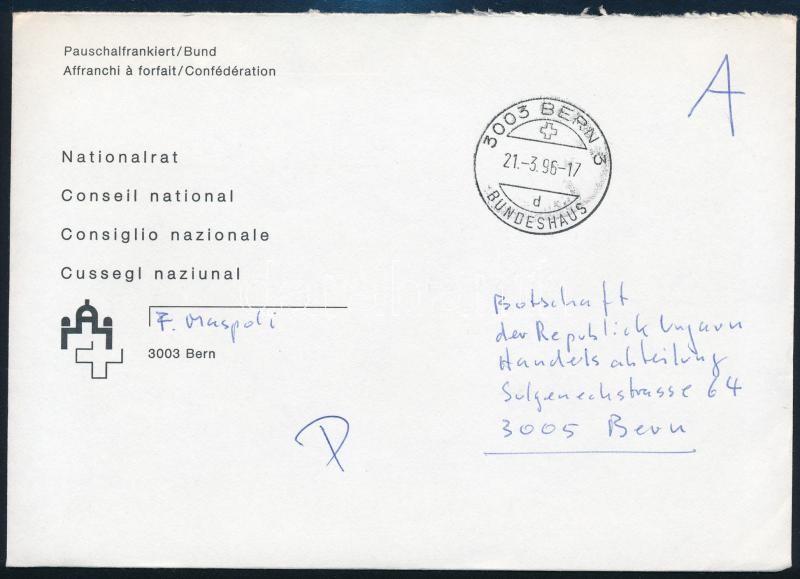 Pauschalfrankiert/Bund
Affranchi à forfait/Confédération
A
3003 BERN 3
21.-3.96-17
d
BUNDESHAUS
Nationalrat
Conseil national
Consiglio nazionale
Cussegl naziunal
F. Maspoli
3003 Bern
Botschaft
der Republick Ungarn
Handelsabteilung
Sulgeneckstrasse 64
3005 Bern